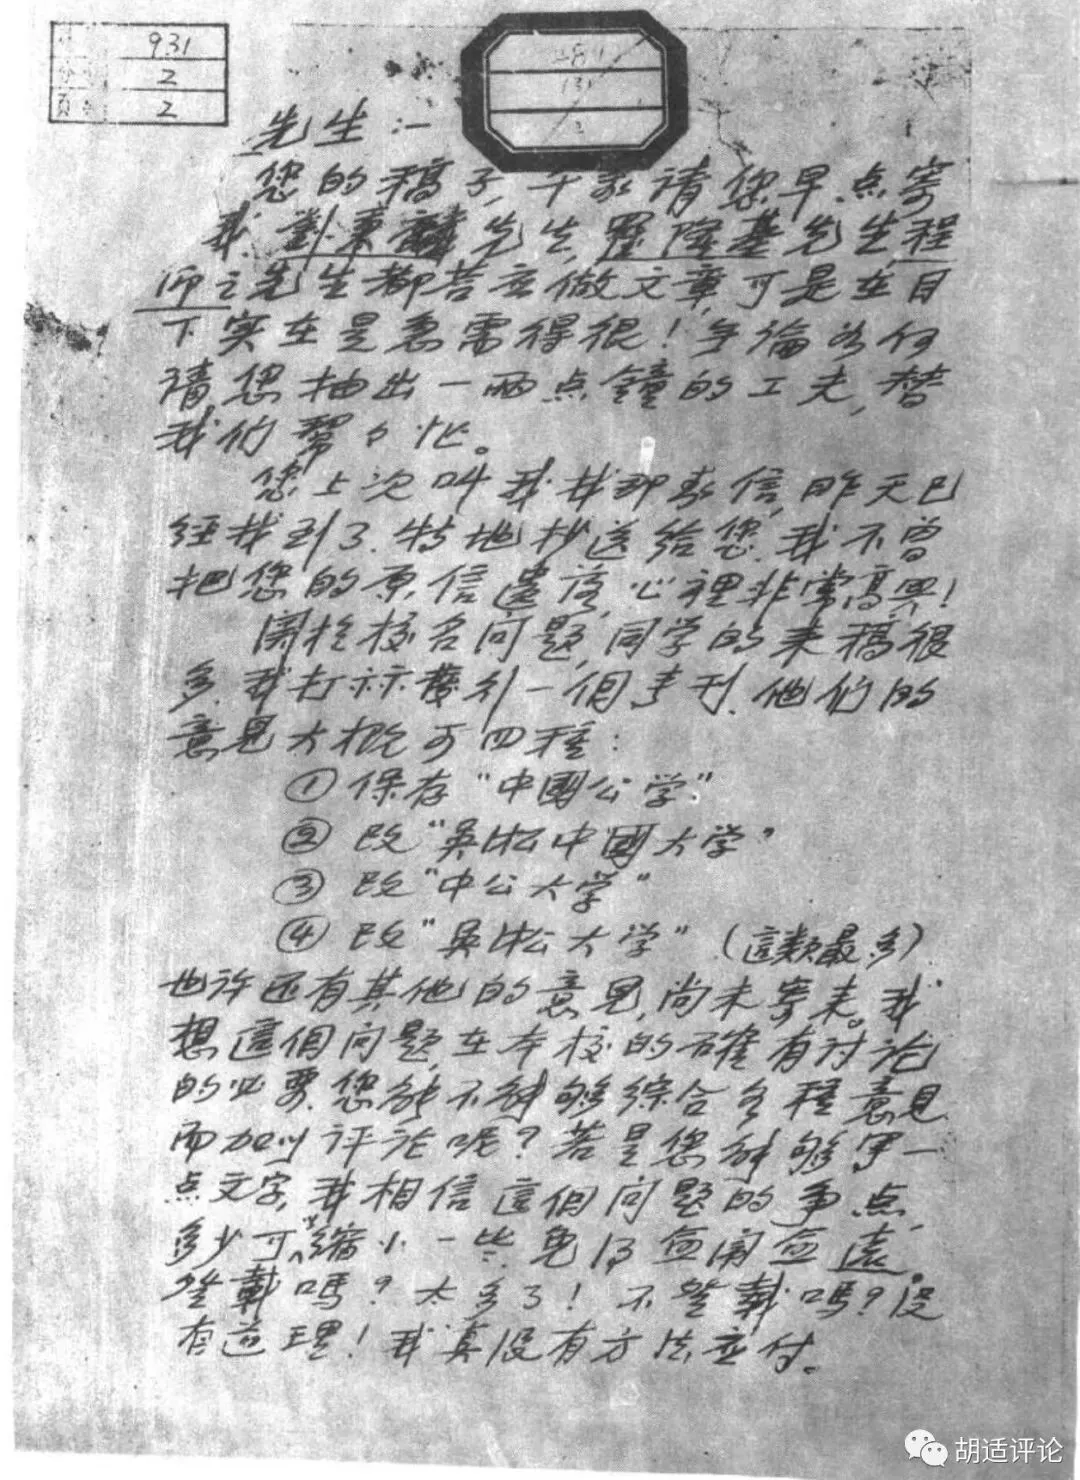 931
2
页 2
131
2
先生：—
您的稿子，千万請您早点寄
我。劉秉麟先生，羅隆基先生，程
师之先生都答应做文章，可是在目
下实在是急需得很！無論如何
請您抽出一兩点鐘的工夫，替
我们幫幫忙。
您上次叫我找那封信，昨天已
經找到了。特地抄送給您。我不曾
把您的原信遺落，心裡非常高興！
関於校名问题，同学的来稿很
多，我打祘發刋一個專刊。他们的
意見大概可四種：
① 保存“中國公学”
② 改“吴淞中國大学”
③ 改“中公大学”
④ 改“吴淞大学”（這類最多）
也许还有其他的意見，尚未寄来。我
想這個问题，在本校的确有讨论
的必要。您能不能够综合各種意見
而加以评论呢？若是您能够写一
点文字，我相信這個问题的争点，
多少可以縮小一些，免得愈闹愈遠。
登載嗎？太多了！不登載嗎？没
有道理！我真没有方法应付。
胡适评论